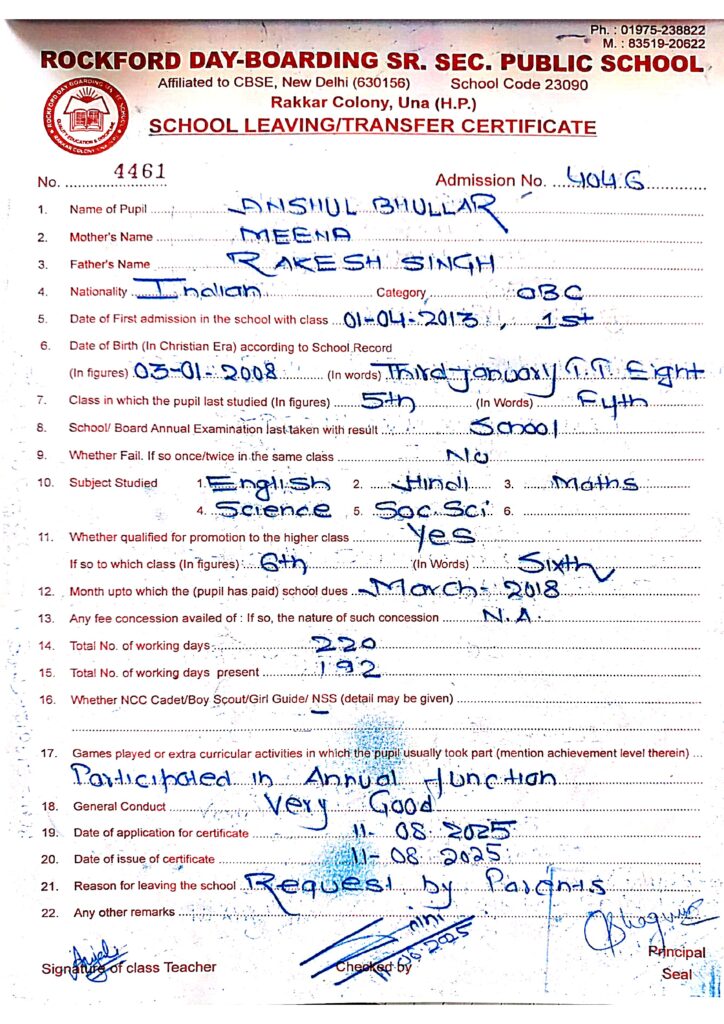 Ph. : 01975-238822
M. : 83519-20622
ROCKFORD DAY-BOARDING SR. SEC. PUBLIC SCHOOL
Affiliated to CBSE, New Delhi (630156) School Code 23090
Rakkar Colony, Una (H.P.)
SCHOOL LEAVING/TRANSFER CERTIFICATE
No. 4461 Admission No. 4046
1. Name of Pupil ANSHUL BHULLAR
2. Mother's Name MEENA
3. Father's Name RAKESH SINGH
4. Nationality Indian Category OBC
5. Date of First admission in the school with class 01-04-2013, 1st
6. Date of Birth (In Christian Era) according to School Record
(In figures) 03-01-2008 (In words) Third January T.T. Eight
7. Class in which the pupil last studied (In figures) 5th (In Words) Fyth
8. School/ Board Annual Examination last taken with result School
9. Whether Fail. If so once/twice in the same class No
10. Subject Studied 1. English 2. Hindi 3. Maths
4. Science 5. Soc. Sci 6.
11. Whether qualified for promotion to the higher class Yes
If so to which class (In figures) 6th (In Words) Sixth
12. Month upto which the (pupil has paid) school dues March-2018
13. Any fee concession availed of : If so, the nature of such concession N.A.
14. Total No. of working days 220
15. Total No. of working days present 192
16. Whether NCC Cadet/Boy Scout/Girl Guide/ NSS (detail may be given)
17. Games played or extra curricular activities in which the pupil usually took part (mention achievement level therein)
Participated in Annual Function
18. General Conduct Very Good
19. Date of application for certificate 11-08 2025
20. Date of issue of certificate 11-08 2025
21. Reason for leaving the school Request by Parents
22. Any other remarks
Signature of class Teacher Checked by Principal
Seal